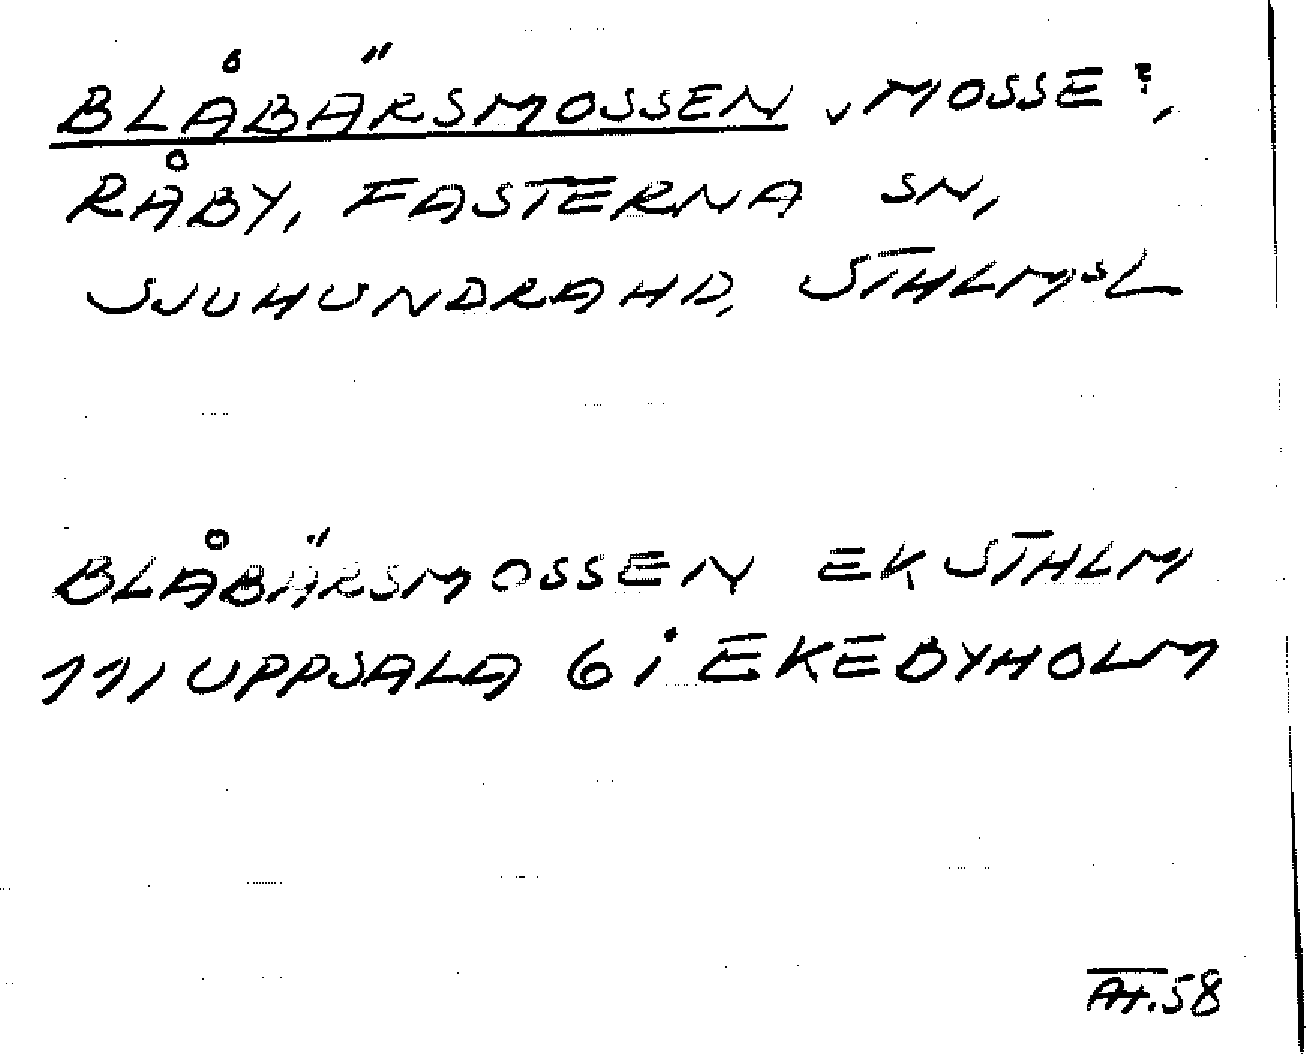 BLÅBÄRSMOSSEN, MOSSE?,
RÅBY, FASTERNA SN,
SJUHUNDRA HD, STHLMSL
BLÅBÄRSMOSSEN EK STHLM
11, UPPSALA 6 i EKEBYHOLM
AH.58